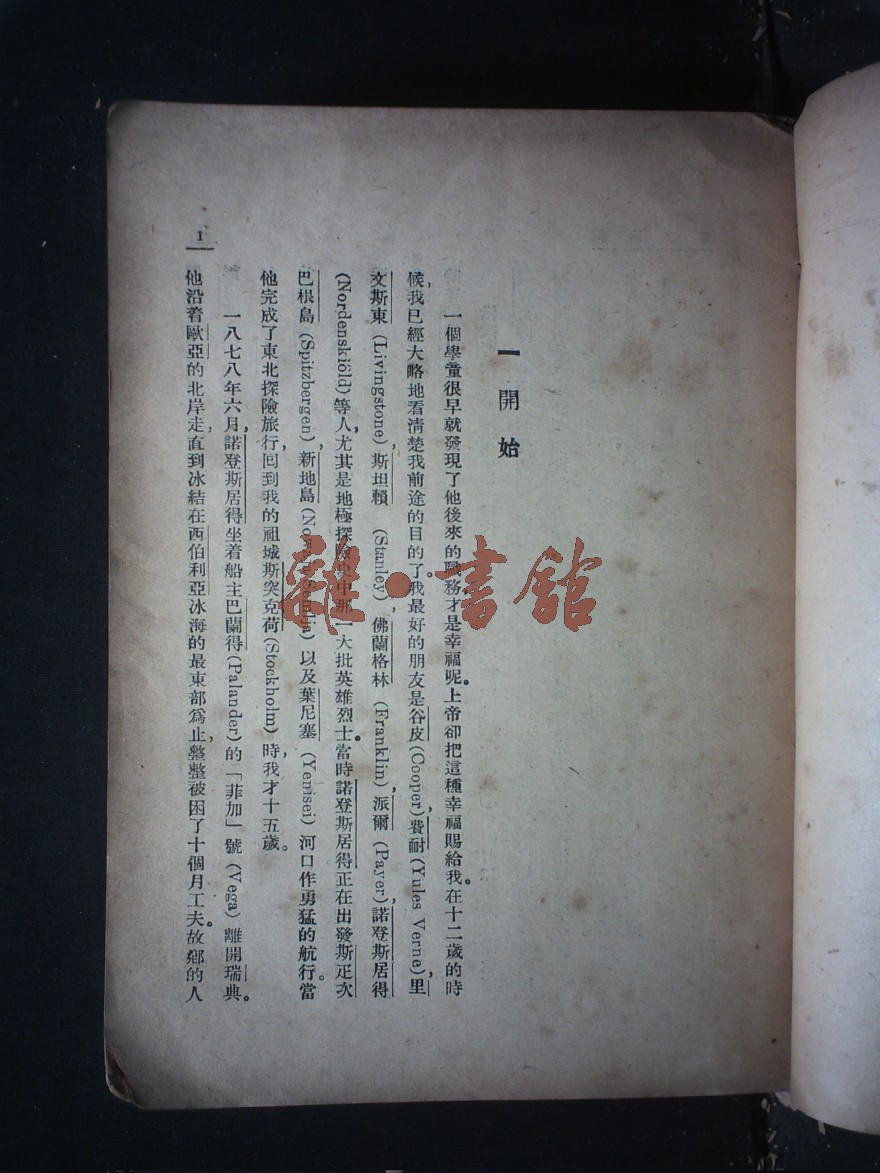 一 開 始
一個學童很早就發現了他後來的職務才是幸福呢。上帝卻把這種幸福賜給我。在十二歲的時
候，我已經大略地看清楚我前途的目的了。我最好的朋友是谷皮(Cooper)，費耐(Yules Verne)，里
文斯東 (Livingstone)，斯坦賴 (Stanley)，佛蘭格林 (Franklin)，派爾 (Payer)，諾登斯居得
(Nordenskiöld) 等人，尤其是地極探險史中那一大批英雄烈士。當時諾登斯居得正在出發斯疋次
巴根島 (Spitzbergen)，新地島 (Nowaja Semlja) 以及葉尼塞 (Yenisei) 河口作勇猛的航行。當
他完成了東北探險旅行，回到我的祖城斯突克荷(Stockholm) 時，我才十五歲。
一八七八年六月，諾登斯居得坐着船主巴蘭得(Palander) 的「菲加」號 (Vega) 離開瑞典。
他沿着歐亞的北岸走，直到冰結在西伯利亞冰海的最東部爲止，整整被困了十個月工夫。故鄉的人
1
雜·書館